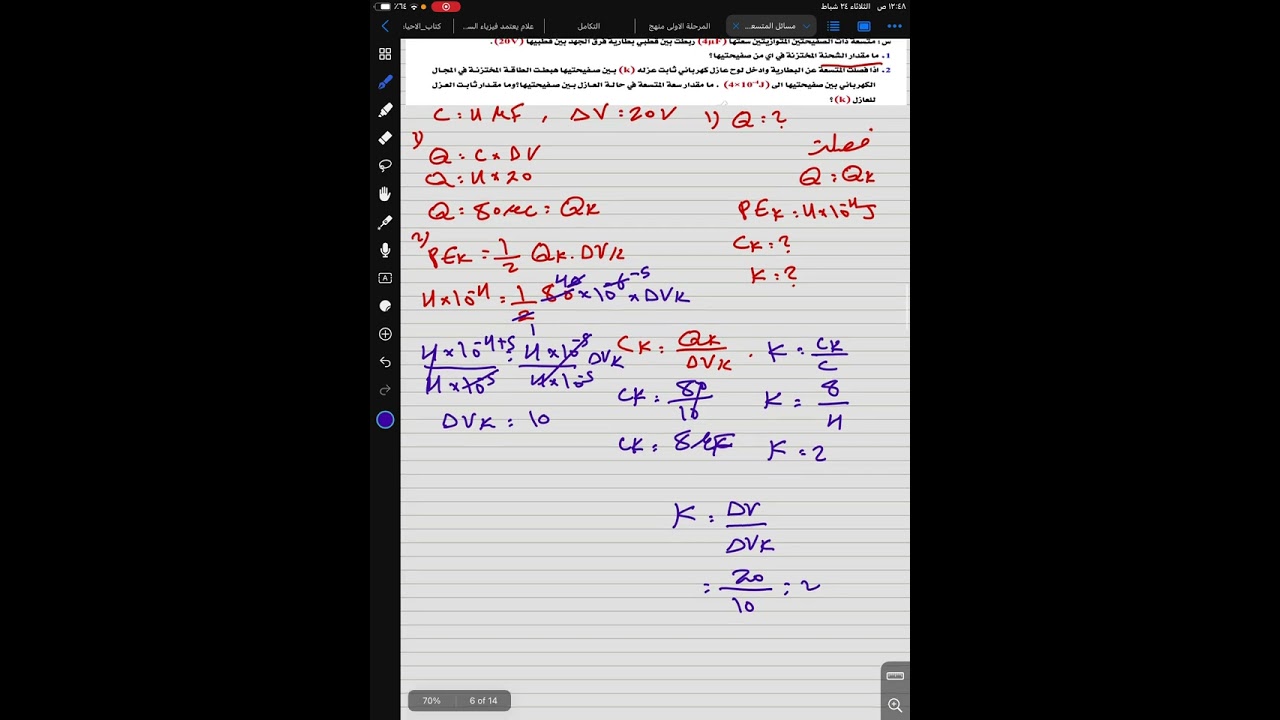 ١٢:٤٨ ص الثلاثاء ٢٤ شباط
٦٤٪
مسائل المتسع...
المرحلة الاولى منهج
التكامل
علام يعتمد فيزياء الس...
كتاب_الاحيا
س: متسعة ذات الصفيحتين المتوازيتين سعتها (4μF) ربطت بين قطبي بطارية فرق الجهد بين قطبيها (20V).
1. ما مقدار الشحنة المختزنة في اي من صفيحتيها؟
2. اذا فصلت المتسعة عن البطارية وادخل لوح عازل كهربائي ثابت عزله (k) بين صفيحتيها هبطت الطاقة المختزنة في المجال
الكهربائي بين صفيحتيها الى (4×10⁻⁴J) ، ما مقدار سعة المتسعة في حالة العازل بين صفيحتيها؟وما مقدار ثابت العزل
للعازل (k)؟
C : 4 μF , ΔV : 20V 1) Q : ?
1)
Q : C × ΔV
Q : 4 × 20
Q : 80 μC : Qk
فصلت
Q : Qk
PEk : 4×10⁻⁴J
Ck : ?
K : ?
2) PEk = 1/2 Qk . ΔVk
4×10⁻⁴ = 1/2 80 40 ×10⁻⁶ ⁻⁵ × ΔVk
1
4×10⁻⁴⁺⁵ / 4×10⁻⁵ : 4×10⁻⁵ / 4×10⁻⁵ ΔVk
ΔVk : 10
Ck : Qk / ΔVk .
Ck : 80 / 10
Ck : 8 μF
K = Ck / C
K = 8 / 4
K = 2
K : ΔV / ΔVk
= 20 / 10 : 2
70% 6 of 14